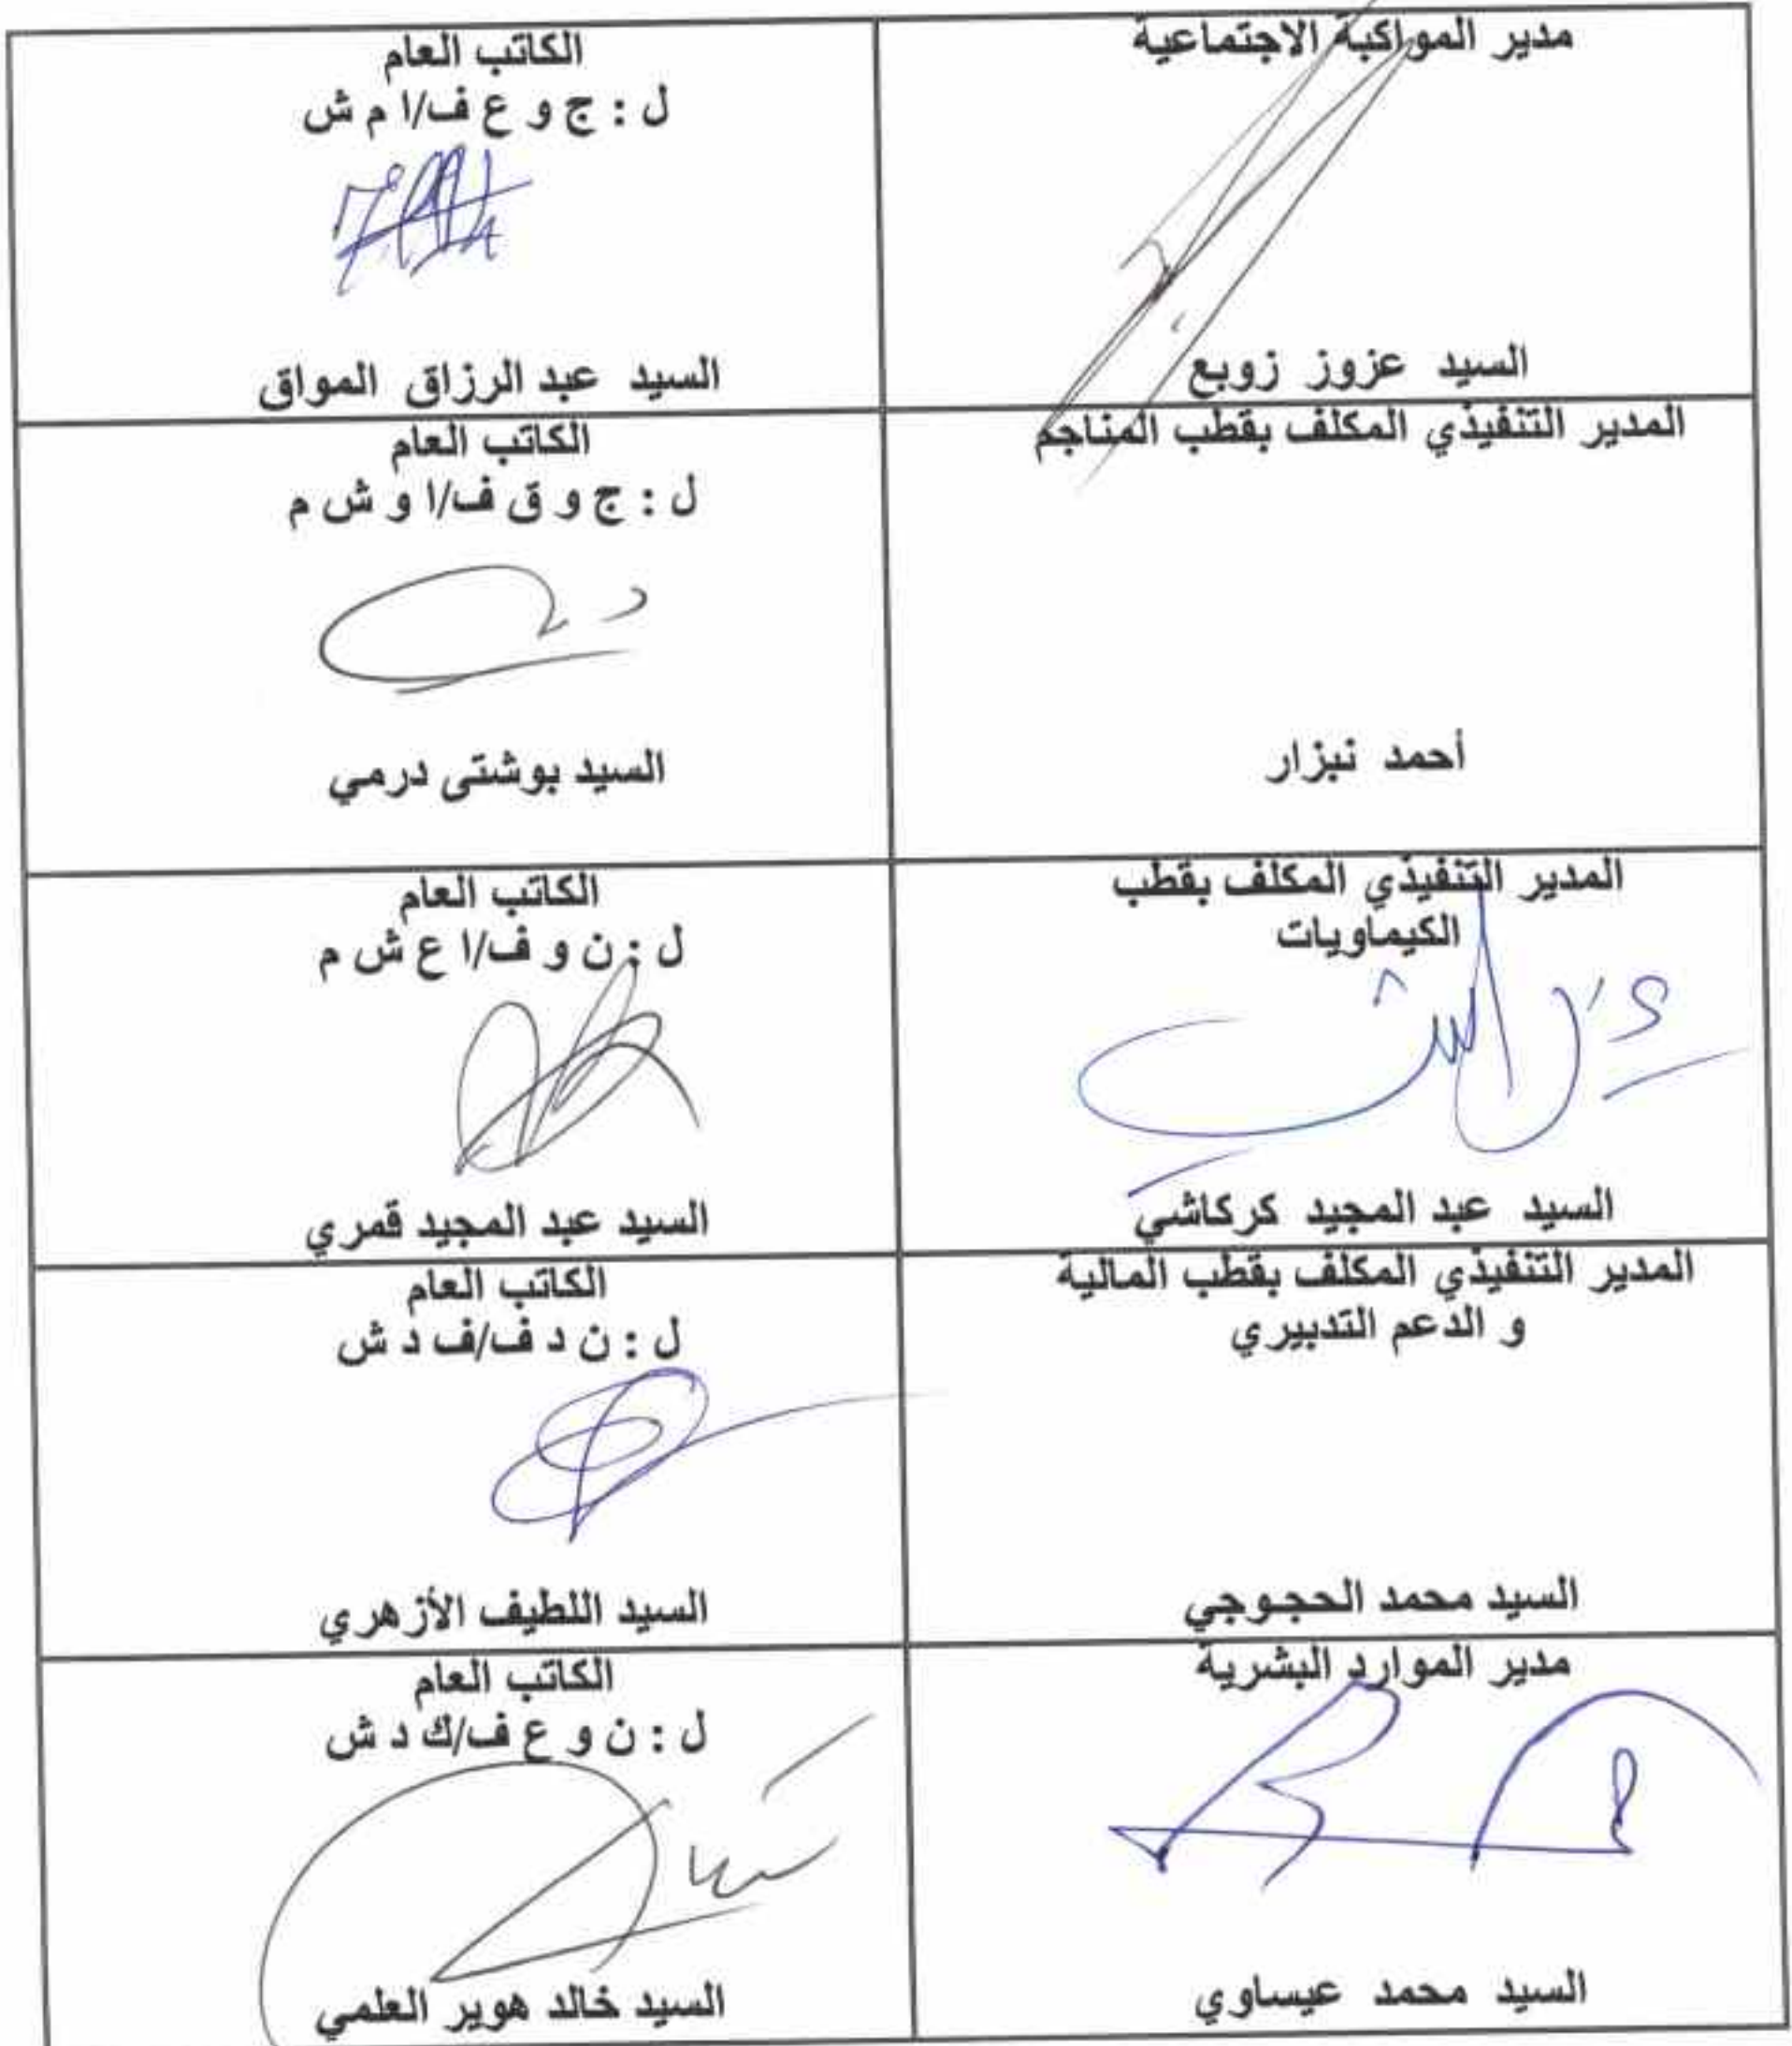 مدير المواكبة الاجتماعية
السيد عزوز زوبع
الكاتب العام
ل : ج و ع ف/ا م ش
السيد عبد الرزاق المواق
المدير التنفيذي المكلف بقطب المناجم
أحمد نبزار
الكاتب العام
ل : ج و ق ف/ا و ش م
السيد بوشتى درمي
المدير التنفيذي المكلف بقطب
الكيماويات
السيد عبد المجيد كركاشي
الكاتب العام
ل : ن و ف/ا ع ش م
السيد عبد المجيد قمري
المدير التنفيذي المكلف بقطب المالية
و الدعم التدبيري
السيد محمد الحجوجي
الكاتب العام
ل : ن د ف/ف د ش
السيد اللطيف الأزهري
مدير الموارد البشرية
السيد محمد عيساوي
الكاتب العام
ل : ن و ع ف/ك د ش
السيد خالد هوير العلمي